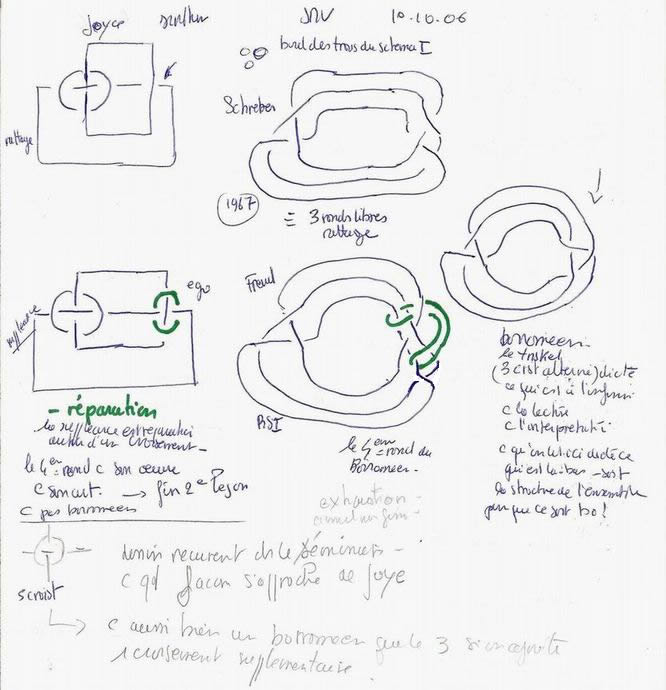 Joyce
JNV 10.10.06
bord des trous du schema I
Schreber
rattage
1967
= 3 ronds libres
rattage
suppleance
ego
Freud
- réparation
la suppleance est reparation
autour d'un croisement -
le 4em rond c son œuvre
c son art. → fin 2e leçon
c pas borromeen
RSI
le 4em rond du
Borromeen -
borromeen -
le triskel
(3 croist alterné) dicte
ce qui est à l'infini
c la lecture
c l'interpretation
c qu'on lit ici de ce
qui est là-bas - soit
la structure de l'ensemble
pour que ce soit bo!
exhaustion -
dessin recurrent ds le séminaire -
c qd Jacan s'approche de Joye
4 croist
↳ c aussi bien un borromeen que le 3
1 croisement supplementaire.